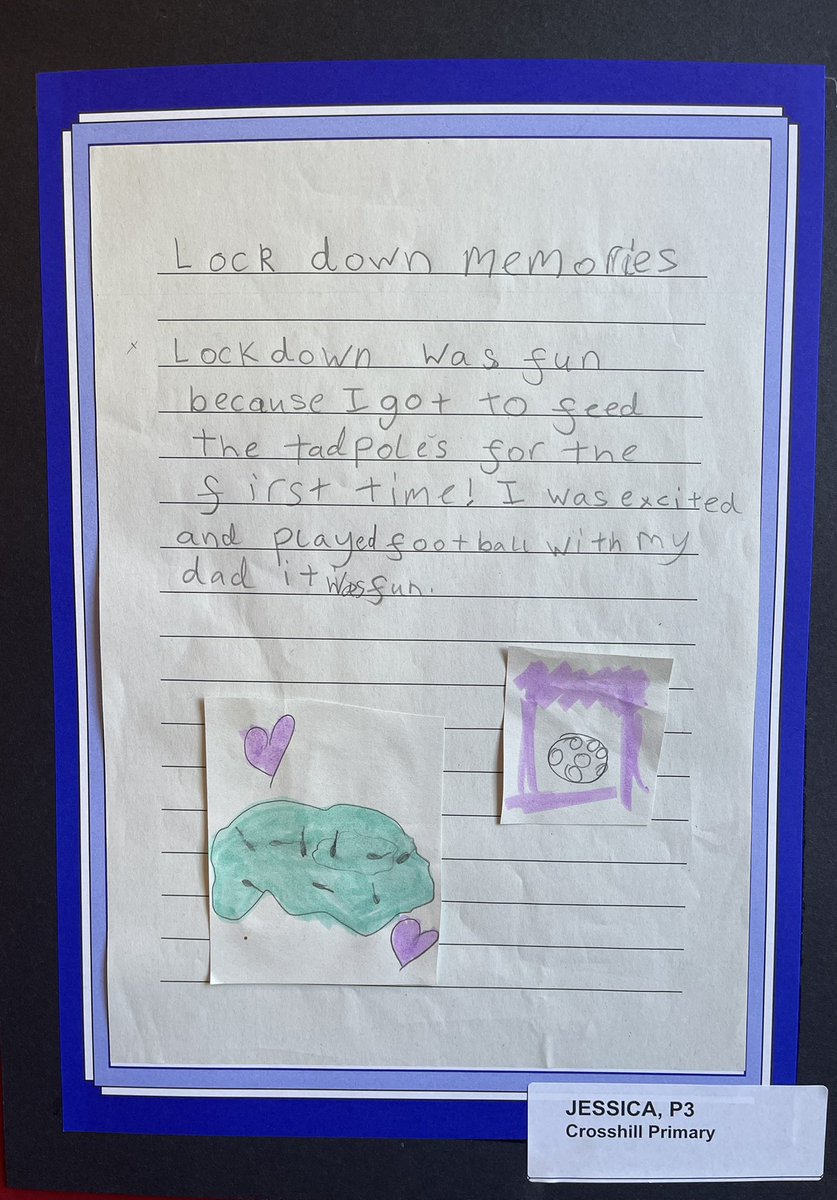 Lock down memories
Lockdown was fun
because I got to feed
the tadpoles for the
first time! I was excited
and played football with my
dad it was fun.
JESSICA, P3
Crosshill Primary